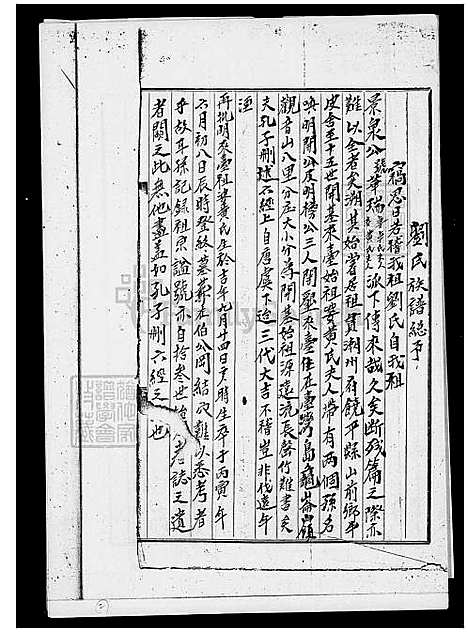 劉氏族譜總序
窃忍曰若稽我祖劉氏自我祖
景泉公號華瑞派下傳來哉久矣斷残篇之際亦
难以全者矣溯其始嘗居祖貫潮州府饒平縣山前鄉
皮舍至十五世開基來臺始祖妣黄氏夫人帶有两個孫名
喚明開公及明榜公三人開墾來臺住在臺灣島崙嶺
觀音山八里分庄大小分等開基始祖源遠流長罄竹难書矣
夫孔子刪述六經上自唐虞下迨三代大吉不稽豈非代遠年
湮
再批明來臺祖妣黄氏生於吉年九月廿四日時生卒于丙寅年
六月初八日辰時登終墓葬本伯公岡結穴难以悉考者
乎故耳孫記録祖宗謚號亦自拾叁世誌之遺
者闕之此無他盖如孔子刪六經之也